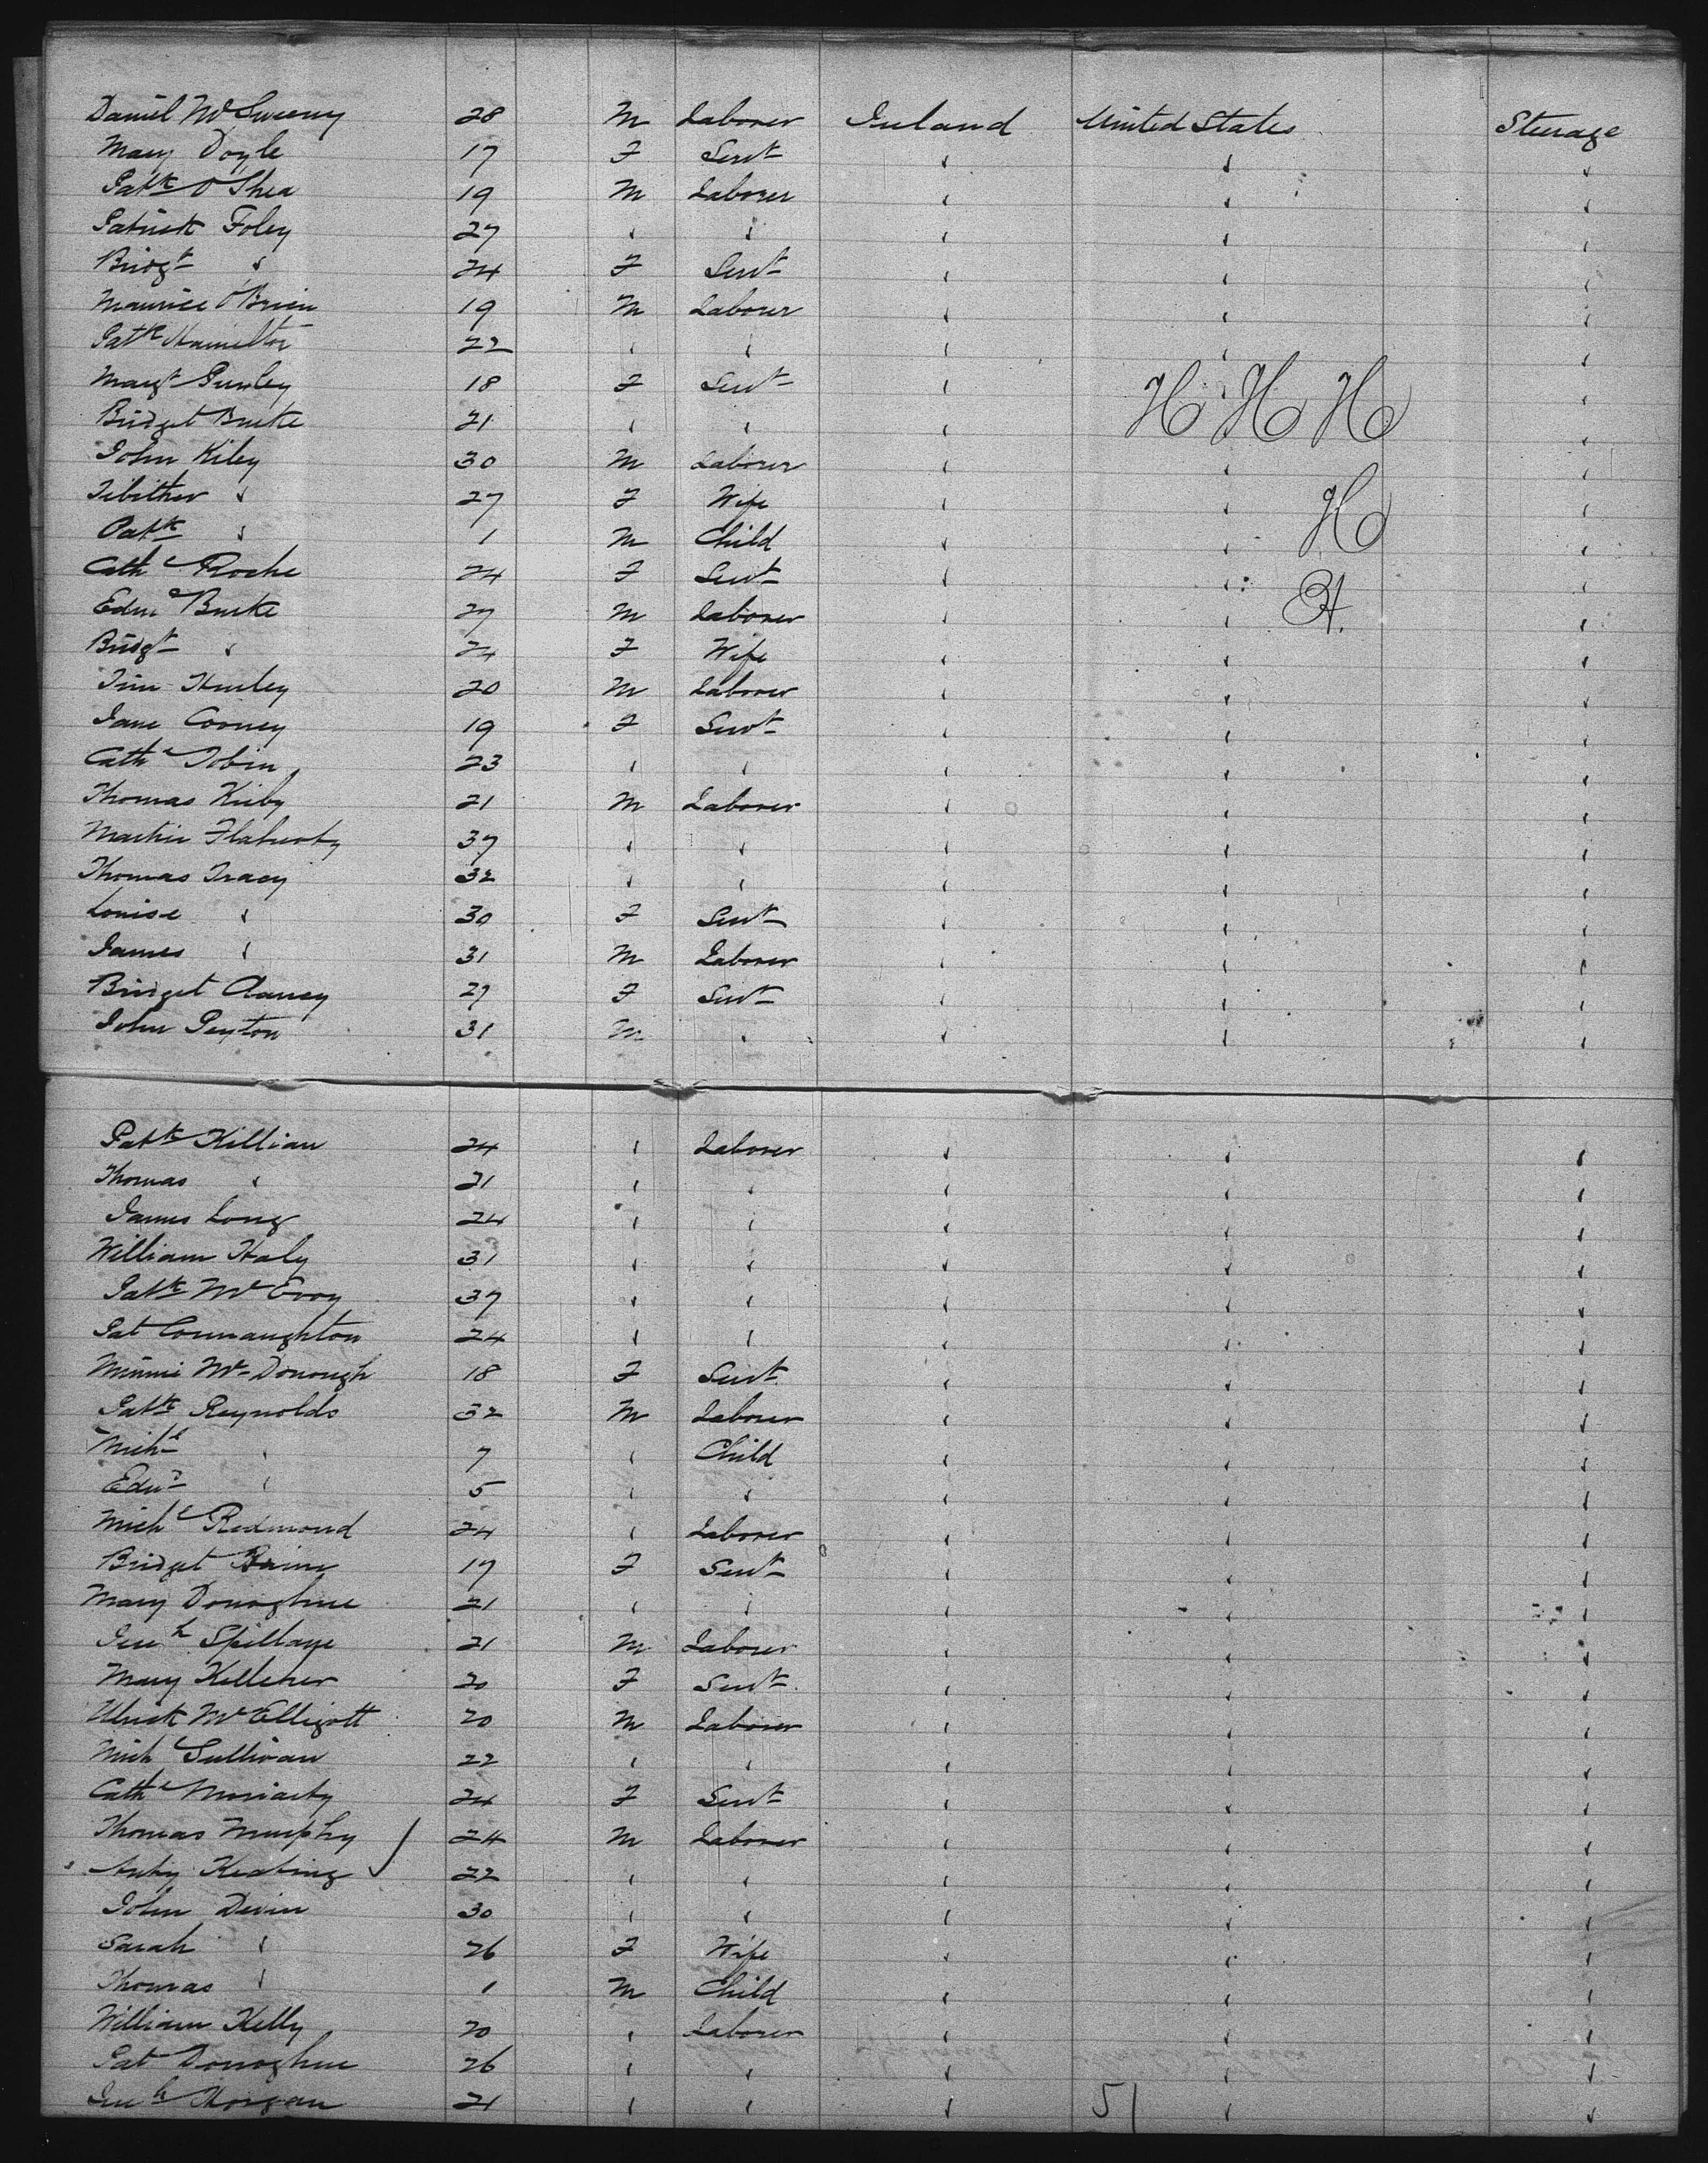 Daniel McSweeny 28 M Laborer Ireland United States Steerage
Mary Doyle 17 F Servt " " "
Patk O'Shea 19 M Laborer " " "
Patrick Foley 27 " " " " "
Bridgt " 24 F Servt " " "
Maurice O'Brien 19 M Laborer " " "
Patk Hamilton 22 " " " " "
Margt 18 F Servt " " "
H H H
Bridget Burke 21 " " " " "
John Kiley 30 M Laborer " " "
" 27 F Wife " " "
H
Patk " 1 M Child " " "
Cathe Roche 24 F Servt " " "
H.
Edmd Burke 27 M Laborer " " "
Bridgt " 24 F Wife " " "
Tim Hurley 20 M Laborer " " "
Jane Cooney 19 F Servt " " "
Cathe Tobin 23 " " " " "
Thomas Kirby 21 M Laborer " " "
Martin Flaherty 37 " " " " "
Thomas Tracy 32 " " " " "
Louise " 30 F Servt " " "
James " 31 M Laborer " " "
Bridget Clancy 27 F Servt " " "
John Peyton 31 M " " " "
Patk Killian 24 " Laborer " " "
Thomas " 21 " " " " "
James Long 24 " " " " "
William Haly 31 " " " " "
Patk McEvoy 37 " " " " "
Pat Connaughton 24 " " " " "
Minnie McDonough 18 F Servt " " "
Patk Reynolds 32 M Laborer " " "
Michl " 7 " Child " " "
Edwd " 5 " " " " "
Michl Redmond 24 " Laborer " " "
Bridget 17 F Servt " " "
Mary Donoghue 21 " " " " "
Jereh Spillane 21 M Laborer " " "
Mary Kelleher 20 F Servt " " "
Ulick McElligott 20 M Laborer " " "
Michl Sullivan 22 " " " " "
Cathe Moriarty 24 F Servt " " "
Thomas Murphy 24 M Laborer " " "
Anty Keating 22 " " " " "
John Devin 30 " " " " "
Sarah " 26 F Wife " " "
Thomas " 1 M Child " " "
William Kelly 20 " Laborer " " "
Pat Donoghue 26 " " " " "
Jereh Horgan 21 " " " " "
51